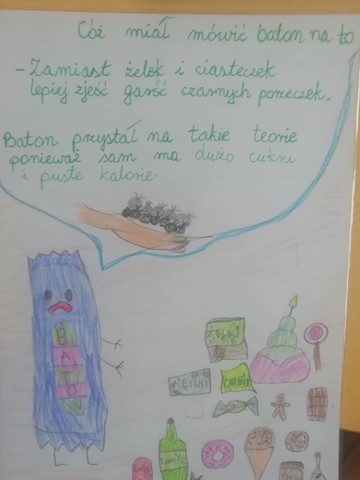 Cóż miał mówić baton na to
- Zamiast żelek i ciasteczek
lepiej zjeść garść czarnych porzeczek.
Baton przystał na takie teorie
ponieważ sam ma dużo cukru
i puste kalorie.
BATO
ŻELKI